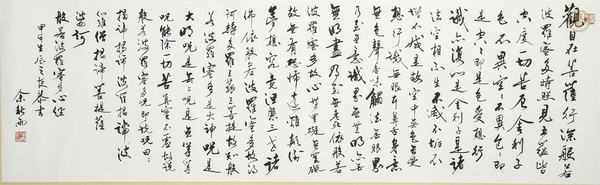 觀自在菩薩行深般若
波羅蜜多時照見五蘊皆
空度一切苦厄舍利子
色不異空空不異色色即
是空空即是色受想行
識亦復如是舍利子是諸
法空相不生不滅不垢不
增不減是故空中無色無受
想行識無眼耳鼻舌身意
無色聲香味觸法無眼界
乃至無意識界無無明亦無
無明盡乃至無老死依般若
波羅蜜多故心無罣礙無罣礙
故無有恐怖遠離顛倒
夢想究竟涅槃三世諸
佛依般若波羅蜜多故得
阿耨多羅三藐三菩提故知般
若波羅蜜多是大神咒是
大明咒是無上咒是無等等
咒能除一切苦真實不虛故說
般若波羅蜜多咒即說咒曰
揭諦揭諦波羅揭諦波
羅僧揭諦菩提薩
婆訶
般若波羅蜜多心經
余秋雨